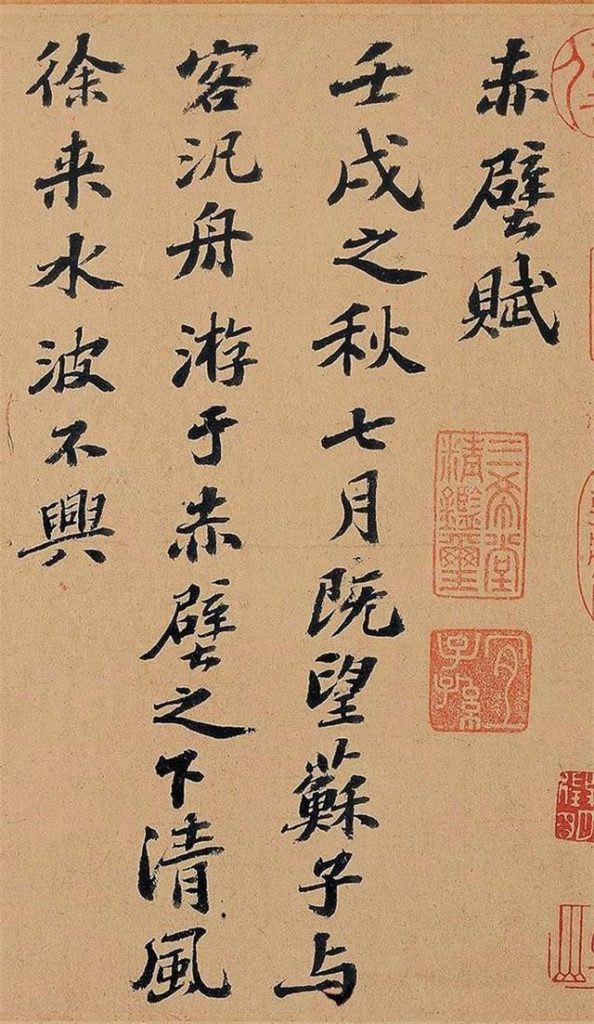 赤壁賦
壬戌之秋七月既望蘇子与
客汎舟游于赤壁之下清風
徐来水波不興
三希堂精鑑璽
宜子孫